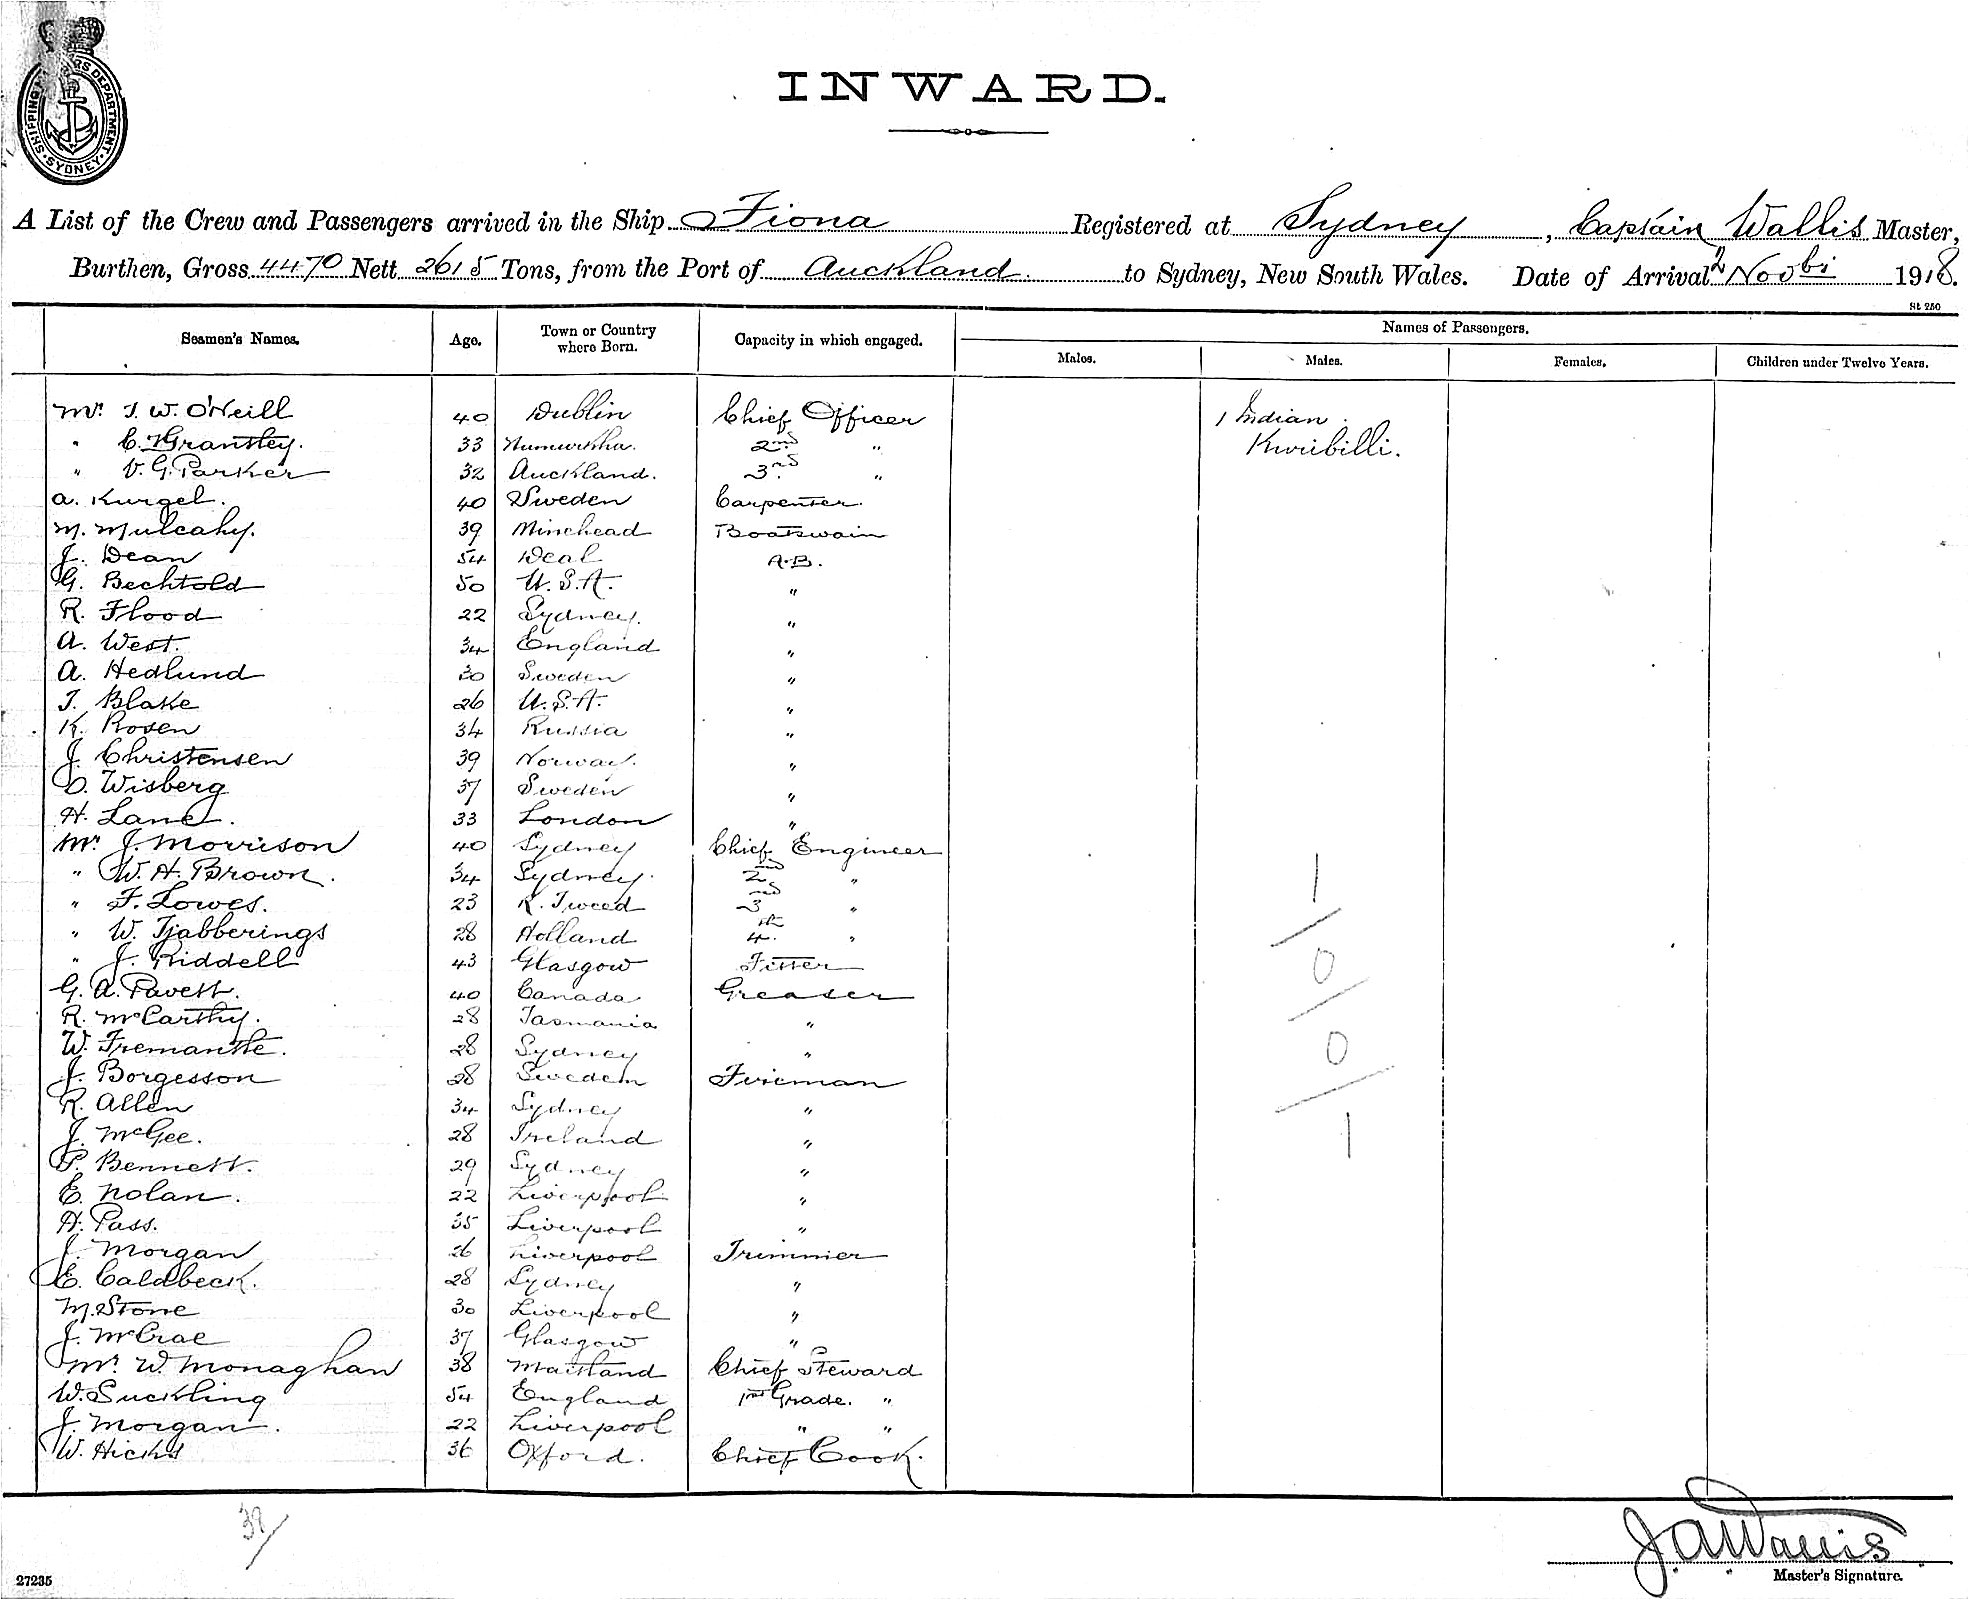 SHIPPING MASTERS DEPARTMENT · SYDNEY ·
INWARD.
A List of the Crew and Passengers arrived in the Ship Fiona Registered at Sydney, Captain Wallis Master,
Burthen, Gross 4470 Nett 2615 Tons, from the Port of Auckland to Sydney, New South Wales. Date of Arrival 2 Novbr 1918.
St 250
Seamen's Names. Age. Town or Country where Born. Capacity in which engaged. Names of Passengers.
Males. Males. Females. Children under Twelve Years.
Mr. J. W. O'Neill 40 Dublin Chief Officer 1 Indian
" C. Grantley. 33 Numurkha. 2nd " Kwibilli.
" V. G. Parker 32 Auckland. 3rd "
A. Kurgel. 40 Sweden Carpenter.
M. Mulcahy. 39 Minehead Boatswain
J. Dean 54 Deal A.B.
G. Bechtold 50 U.S.A. "
R. Flood 22 Sydney. "
A. West. 34 England "
A. Hedlund 30 Sweden "
J. Blake 26 U.S.A. "
K. Rosen 34 Russia "
J. Christensen 39 Norway. "
O. Wisberg 37 Sweden "
H. Lane. 33 London "
Mr. J. Morrison 40 Sydney Chief Engineer
" W. H. Brown. 34 Sydney. 2nd "
" F. Lowes. 23 R. Tweed 3rd "
" W. Tjabberings 28 Holland 4th "
" J. Riddell 43 Glasgow Fitter
G. A. Pavett. 40 Canada Greaser
R. McCarthy. 28 Tasmania "
W. Fremantle. 28 Sydney "
J. Borgesson 28 Sweden Fireman
R. Allen 34 Sydney "
J. McGee. 28 Ireland "
P. Bennett. 29 Sydney "
E. Nolan. 22 Liverpool "
H. Pass. 35 Liverpool "
J. Morgan 26 Liverpool Trimmer
E. Caldbeck. 28 Sydney "
M. Stone 30 Liverpool "
J. McCrae 37 Glasgow "
Mr. W. Monaghan 38 Maitland Chief Steward
W. Suckling 54 England 1st Grade. "
J. Morgan. 22 Liverpool " "
W. Hicks 36 Oxford. Chief Cook.
1/0/0/1
J. A. Wallis
Master's Signature.
27235